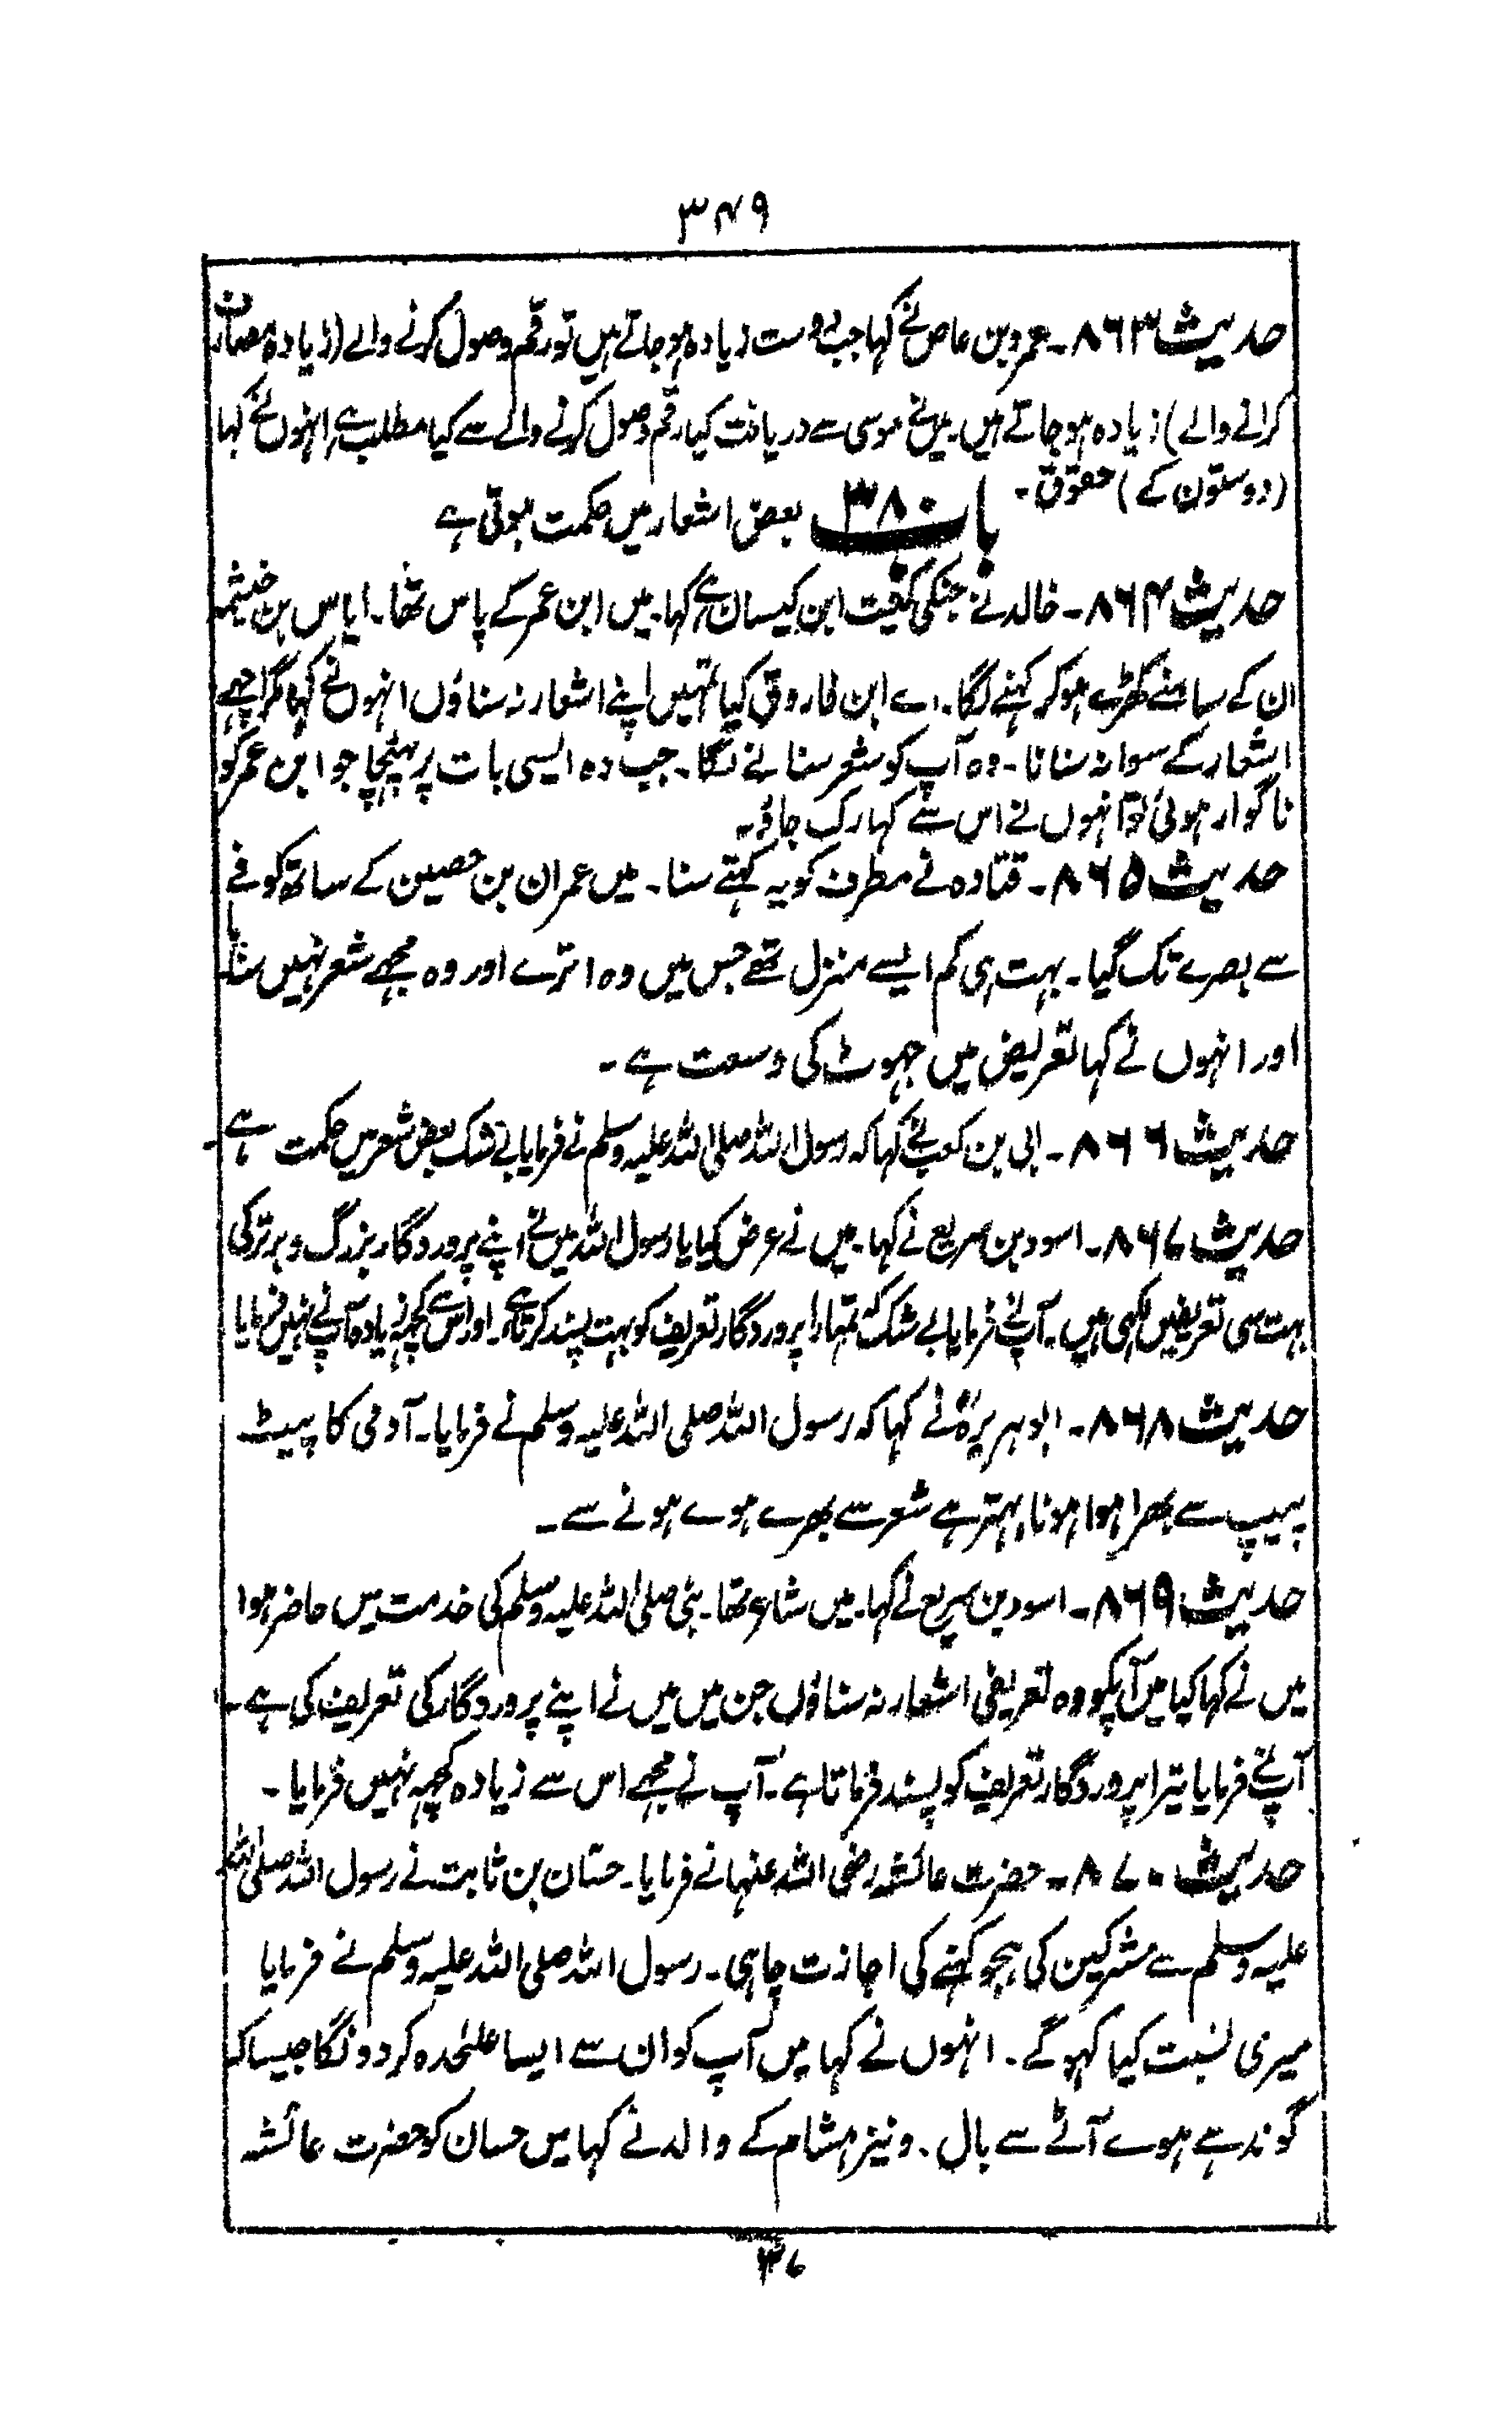 ۳۴۹
حدیث ۸۶۳۔ عمرو بن عاص نے کہا جب دوست زیادہ ہو جاتے ہیں تو رقم وصول کرنے والے (زیادہ مصارف
کرانے والے) زیادہ ہو جاتے ہیں۔ میں نے موسی سے دریافت کیا رقم وصول کرنے والے سے کیا مطلب ہے انہوں نے کہا
(دوستوں کے) حقوق۔
باب ۳۸۰ بعض اشعار میں حکمت ہوتی ہے
حدیث ۸۶۴۔ خالد نے جنکی کنیت ابن کیسان ہے کہا۔ میں ابن عمر کے پاس تھا۔ ایاس بن خیثمہ
ان کے سامنے کھڑے ہو کر کہنے لگا۔ اے ابن فاروق کیا تمہیں اپنے اشعار نہ سناؤں انہوں نے کہا مگر اچھے
اشعار کے سوا نہ سنانا۔ وہ آپ کو شعر سنانے لگا۔ جب وہ ایسی بات پر پہنچا جو ابن عمر کو
ناگوار ہوئی تو انہوں نے اس سے کہا رک جاؤ۔
حدیث ۸۶۵۔ قتادہ نے مطرف کو یہ کہتے سنا۔ میں عمران بن حصین کے ساتھ کوفے
سے بصرے تک گیا۔ بہت ہی کم ایسے منزل تھے جس میں وہ اترے اور وہ مجھے شعر نہیں سنا
اور انہوں نے کہا تعریض میں جہوٹ کی وسعت ہے۔
حدیث ۸۶۶۔ ابی بن کعب نے کہا کہ رسول اللہ صلی اللہ علیہ وسلم نے فرمایا بے شک بعض شعر میں حکمت ہے۔
حدیث ۸۶۷۔ اسود بن سریع نے کہا۔ میں نے عرض کیا یا رسول اللہ میں نے اپنے پروردگار بزرگ و برتر کی
بہت سی تعریفیں لکہی ہیں۔ آپ نے فرمایا بے شک تمہارا پروردگار تعریف کو بہت پسند کرتا ہے۔ اور اس سے کچہہ زیادہ آپ نے نہیں فرمایا
حدیث ۸۶۸۔ ابو ہریرہؓ نے کہا کہ رسول اللہ صلی اللہ علیہ وسلم نے فرمایا۔ آدمی کا پیٹ
پیپ سے بھرا ہوا ہونا بہتر ہے شعر سے بھرے ہوے ہونے سے۔
حدیث ۸۶۹۔ اسود بن سریع نے کہا۔ میں شاعر تھا۔ نبی صلی اللہ علیہ وسلم کی خدمت میں حاضر ہوا
میں نے کہا کیا میں آپکو وہ تعریفی اشعار نہ سناؤں جن میں میں نے اپنے پروردگار کی تعریف کی ہے۔
آپ نے فرمایا تیرا پروردگار تعریف کو پسند فرماتا ہے۔ آپ نے مجھے اس سے زیادہ کچہہ نہیں فرمایا۔
حدیث ۸۷۰۔ حضرت عائشہ رضی اللہ عنہا نے فرمایا۔ حسّان بن ثابت نے رسول اللہ صلی اللہ
علیہ وسلم سے مشرکین کی ہجو کہنے کی اجازت چاہی۔ رسول اللہ صلی اللہ علیہ وسلم نے فرمایا
میری نسبت کیا کہو گے۔ انہوں نے کہا میں آپ کو ان سے ایسا علٰحدہ کر دونگا جیسا کہ
گوندہے ہوے آٹے سے بال۔ و نیز ہشام کے والد نے کہا میں حسان کو حضرت عائشہ